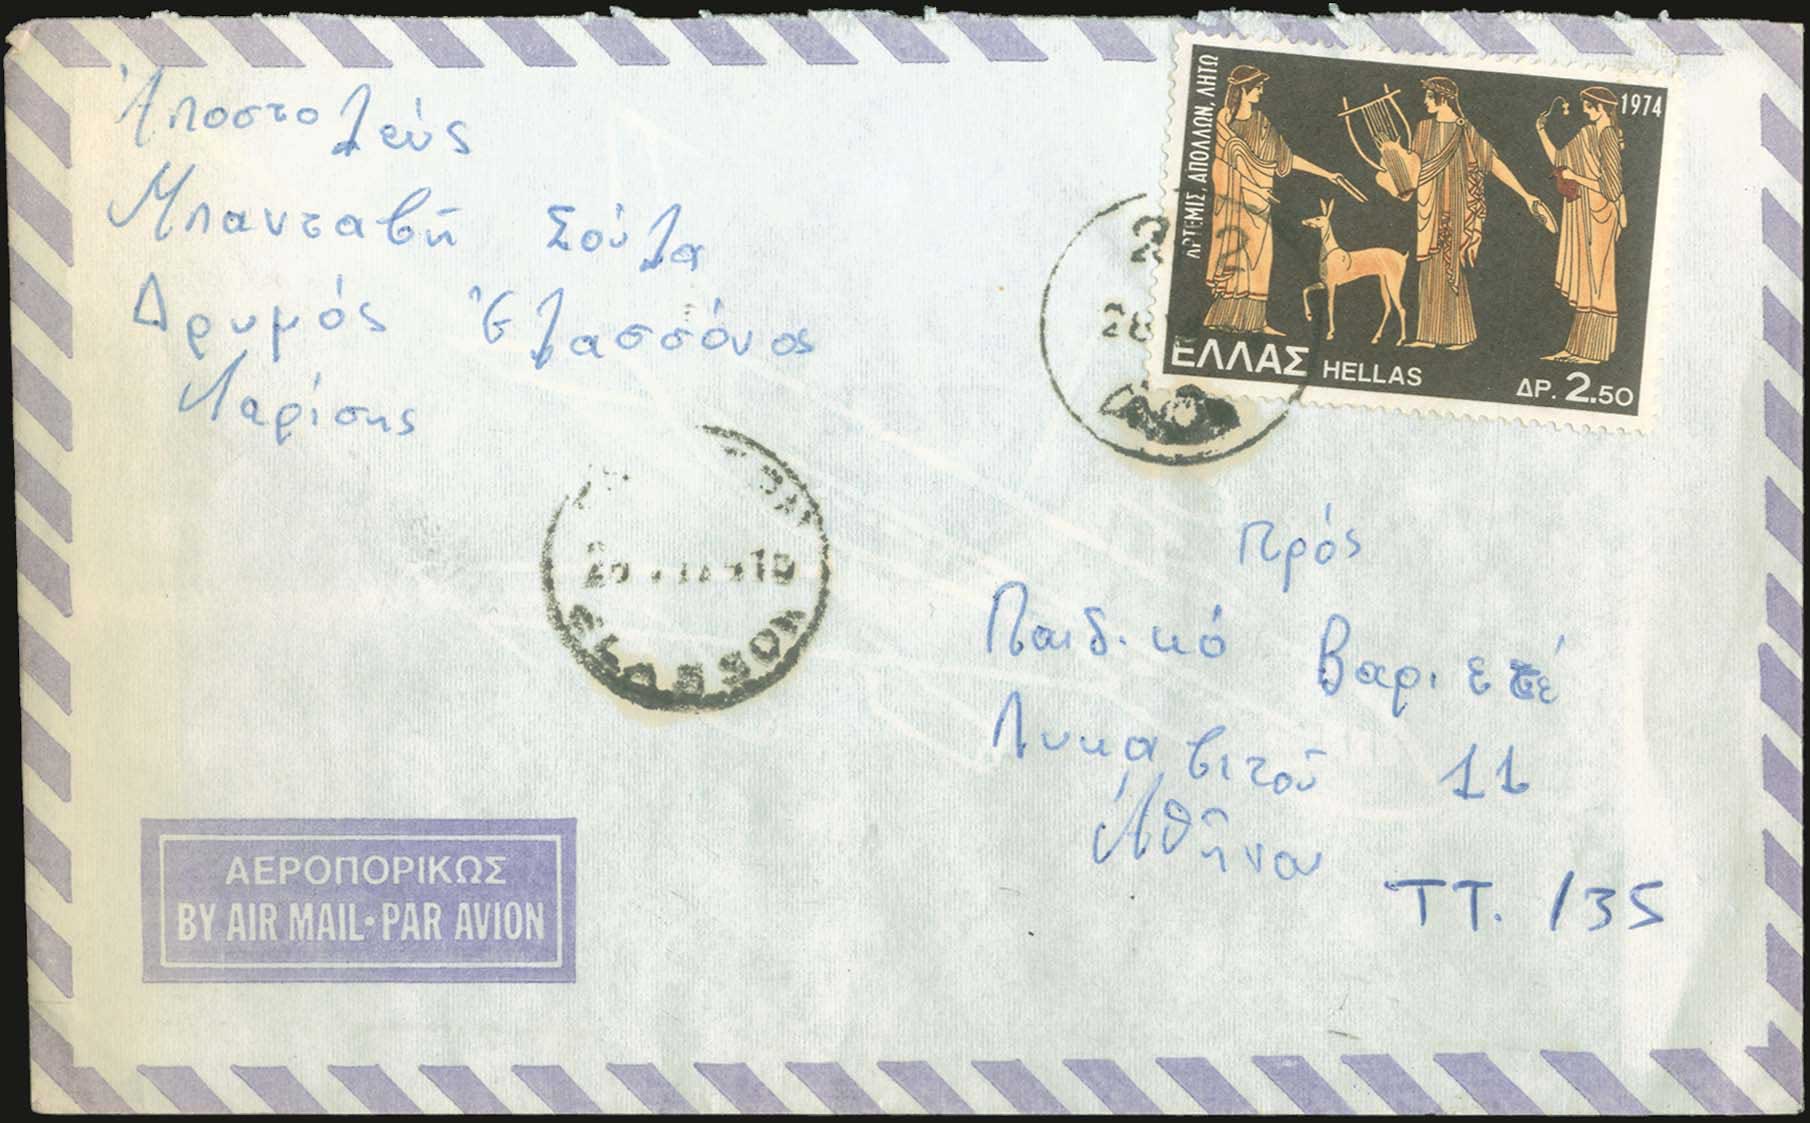 Ἀποστολεύς
Μπανταβῆ Σούλα
Δρυμός Ἐλασσόνος
Λαρίσης
ΑΡΤΕΜΙΣ, ΑΠΟΛΛΩΝ, ΛΗΤΩ
1974
ΕΛΛΑΣ HELLAS
ΔΡ. 2.50
ELASSON
Πρός
Παιδικό Βαριετέ
Λυκαβιτοῦ 11
Ἀθῆνα
ΤΤ. 135
ΑΕΡΟΠΟΡΙΚΩΣ
BY AIR MAIL·PAR AVION